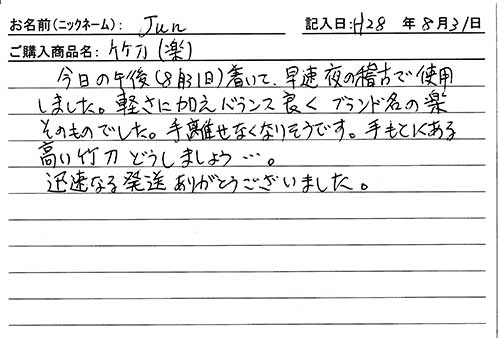 お名前(ニックネーム): Jun 記入日: H28 年 8月 31日
ご購入商品名: 竹刀(楽)
今日の午後(8月31日)着いて、早速夜の稽古で使用
しました。軽さに加えバランス良く ブランド名の楽
そのものでした。手離せなくなりそうです。手もとにある
高い竹刀 どうしましょう…。
迅速なる発送ありがとうございました。